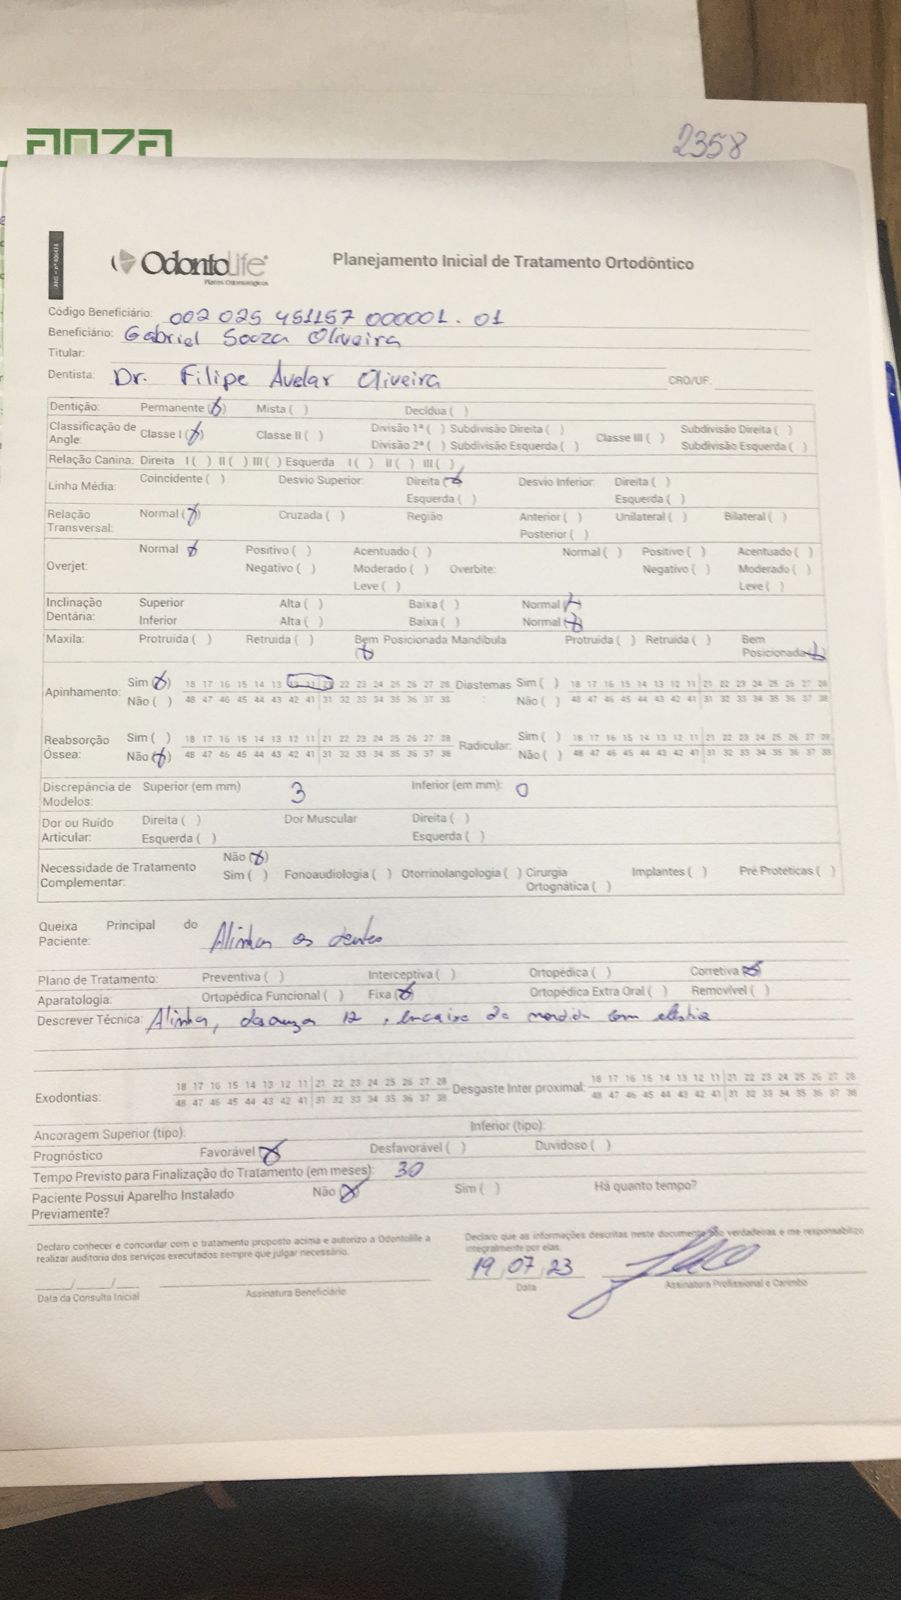 anza
2358
OdontoLife
Planos Odontológicos
Planejamento Inicial de Tratamento Ortodôntico
Código Beneficiário: 002 025 451157 000001.01
Beneficiário: Gabriel Souza Oliveira
Titular:
Dentista: Dr. Filipe Avelar Oliveira CRO/UF:
Dentição: Permanente (x) Mista ( ) Decídua ( )
Classificação de Angle: Classe I (x) Classe II ( ) Divisão 1ª ( ) Subdivisão Direita ( ) Classe III ( ) Subdivisão Direita ( )
Divisão 2ª ( ) Subdivisão Esquerda ( ) Subdivisão Esquerda ( )
Relação Canina: Direita I ( ) II ( ) III ( ) Esquerda I ( ) II ( ) III ( )
Linha Média: Coincidente ( ) Desvio Superior: Direita (x) Desvio Inferior: Direita ( )
Esquerda ( ) Esquerda ( )
Relação Transversal: Normal (x) Cruzada ( ) Região Anterior ( ) Unilateral ( ) Bilateral ( )
Posterior ( )
Normal x Positivo ( ) Acentuado ( ) Normal ( ) Positivo ( ) Acentuado ( )
Overjet: Negativo ( ) Moderado ( ) Overbite: Negativo ( ) Moderado ( )
Leve ( ) Leve ( )
Inclinação Dentária: Superior Alta ( ) Baixa ( ) Normal (x)
Inferior Alta ( ) Baixa ( ) Normal (x)
Maxila: Protruida ( ) Retruida ( ) Bem Posicionada (x) Mandíbula Protruida ( ) Retruida ( ) Bem Posicionada (x)
Apinhamento: Sim (x) 18 17 16 15 14 13 12 11 21 22 23 24 25 26 27 28 Diastemas: Sim ( ) 18 17 16 15 14 13 12 11 21 22 23 24 25 26 27 28
Não ( ) 48 47 46 45 44 43 42 41 31 32 33 34 35 36 37 38 Não ( ) 48 47 46 45 44 43 42 41 31 32 33 34 35 36 37 38
Reabsorção Óssea: Sim ( ) 18 17 16 15 14 13 12 11 21 22 23 24 25 26 27 28 Radicular: Sim ( ) 18 17 16 15 14 13 12 11 21 22 23 24 25 26 27 28
Não (x) 48 47 46 45 44 43 42 41 31 32 33 34 35 36 37 38 Não ( ) 48 47 46 45 44 43 42 41 31 32 33 34 35 36 37 38
Discrepância de Modelos: Superior (em mm) 3 Inferior (em mm): 0
Dor ou Ruído Articular: Direita ( ) Dor Muscular Direita ( )
Esquerda ( ) Esquerda ( )
Necessidade de Tratamento Complementar: Não (x)
Sim ( ) Fonoaudiologia ( ) Otorrinolangologia ( ) Cirurgia Ortognática ( ) Implantes ( ) Pré Protéticas ( )
Queixa Principal do Paciente: Alinhar os dentes
Plano de Tratamento: Preventiva ( ) Interceptiva ( ) Ortopédica ( ) Corretiva (x)
Aparatologia: Ortopédica Funcional ( ) Fixa (x) Ortopédica Extra Oral ( ) Removível ( )
Descrever Técnica: Alinhar, 12, encaixe da mordida com
Exodontias: 18 17 16 15 14 13 12 11 21 22 23 24 25 26 27 28 Desgaste Inter proximal: 18 17 16 15 14 13 12 11 21 22 23 24 25 26 27 28
48 47 46 45 44 43 42 41 31 32 33 34 35 36 37 38 48 47 46 45 44 43 42 41 31 32 33 34 35 36 37 38
Ancoragem Superior (tipo): Inferior (tipo):
Prognóstico Favorável (x) Desfavorável ( ) Duvidoso ( )
Tempo Previsto para Finalização do Tratamento (em meses): 30
Paciente Possui Aparelho Instalado Previamente? Não (x) Sim ( ) Há quanto tempo?
Declaro conhecer e concordar com o tratamento proposto acima e autorizo a Odontolife a
realizar auditoria dos serviços executados sempre que julgar necessário.
Declaro que as informações descritas neste documento são verdadeiras e me responsabilizo
integralmente por elas.
19 07 23
__/__/__
Data da Consulta Inicial Assinatura Beneficiário Data Assinatura Profissional e Carimbo